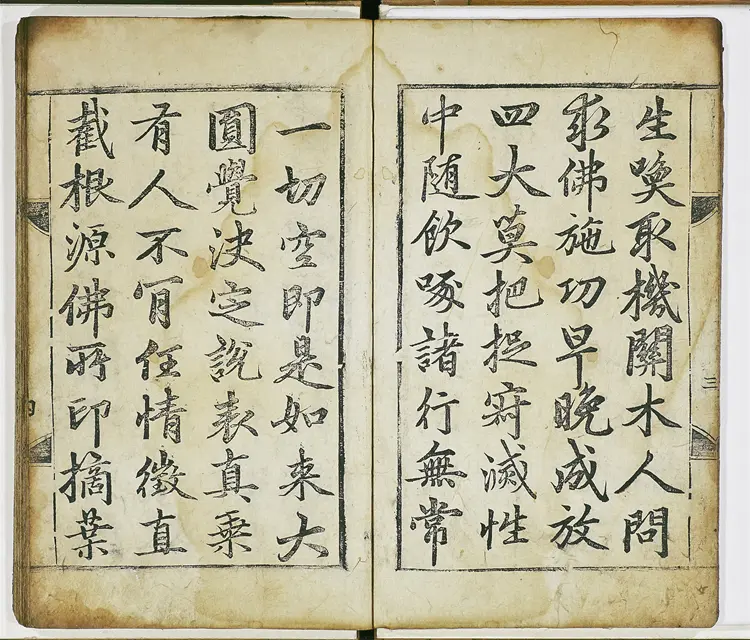 生喚取機關木人問
求佛施功早晚成放
四大莫把捉寂滅性
中随飲啄諸行無常
一切空即是如來大
圓覺決定說表真乗
有人不肎任情徵直
截根源佛所印摘葉
三